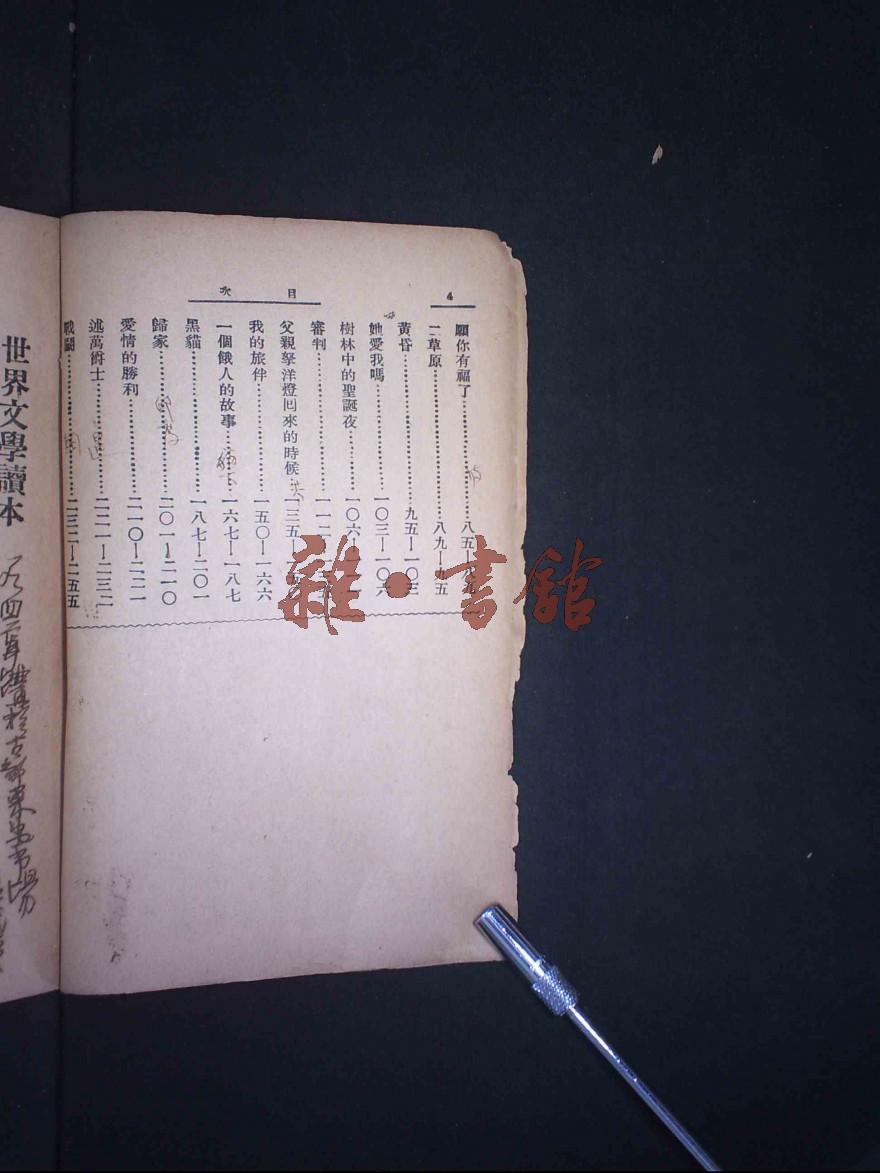 4
目次
願你有福了……八五—
二草原……八九—九五
黃昏……九五—一〇三
她愛我嗎……一〇三—一〇六
樹林中的聖誕夜……一〇六—
審判……一一二—
父親拏洋燈囘來的時候……一三五—
我的旅伴……一五〇—一六六
一個餓人的故事……一六七—一八七
黑貓……一八七—二〇一
歸家……二〇一—二一〇
愛情的勝利……二一〇—二二一
述萬爵士……二二一—二三二
戰鬪……二三二—二五五
世界文學讀本
雜·書館